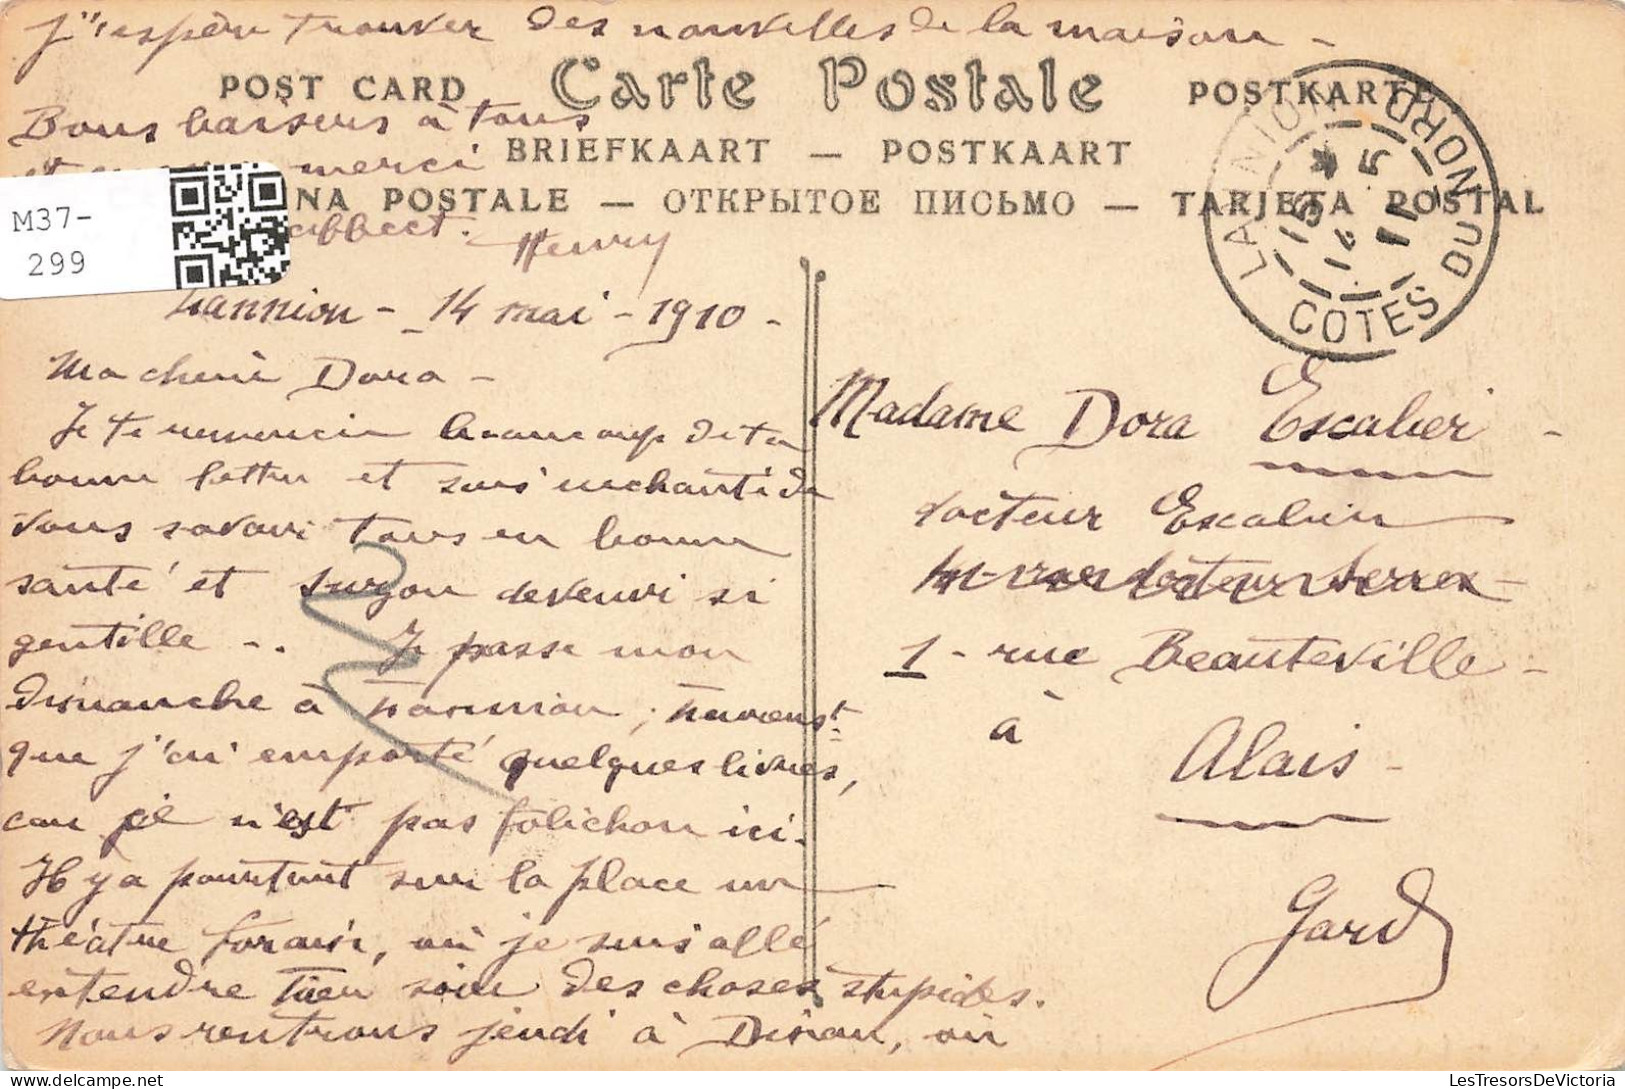 j'espère trouver des nouvelles de la maison -
POST CARD Carte Postale POSTKARTE
Bons baisers à tous
BRIEFKAART — POSTKAART
et merci
NA POSTALE — ОТКРЫТОЕ ПИСЬМО — TARJETA POSTAL
affect. Henry
M37-
299
LANNION
COTES DU NORD
15 *
14 - 5
Lannion - 14 mai - 1910 -
Ma cherie Dora -
Je te remercie beaucoup de ta
bonne lettre et suis enchanté de
vous savoir tous en bonne
santé et Suzon devenir si
gentille -.. Je passe mon
dimanche à Lannion ; heureust
que j'ai emporté quelques livres,
car ce n'est pas folichon ici.
Il y a pourtant sur la place un
théâtre forain, où je suis allé
entendre hier soir des choses stupides.
Nous rentrons jeudi à Dinan, où
Madame Dora Escalier -
docteur Escalier
1 - rue Beauteville -
à
Alais -
Gard
LesTresorsDeVictoria.com